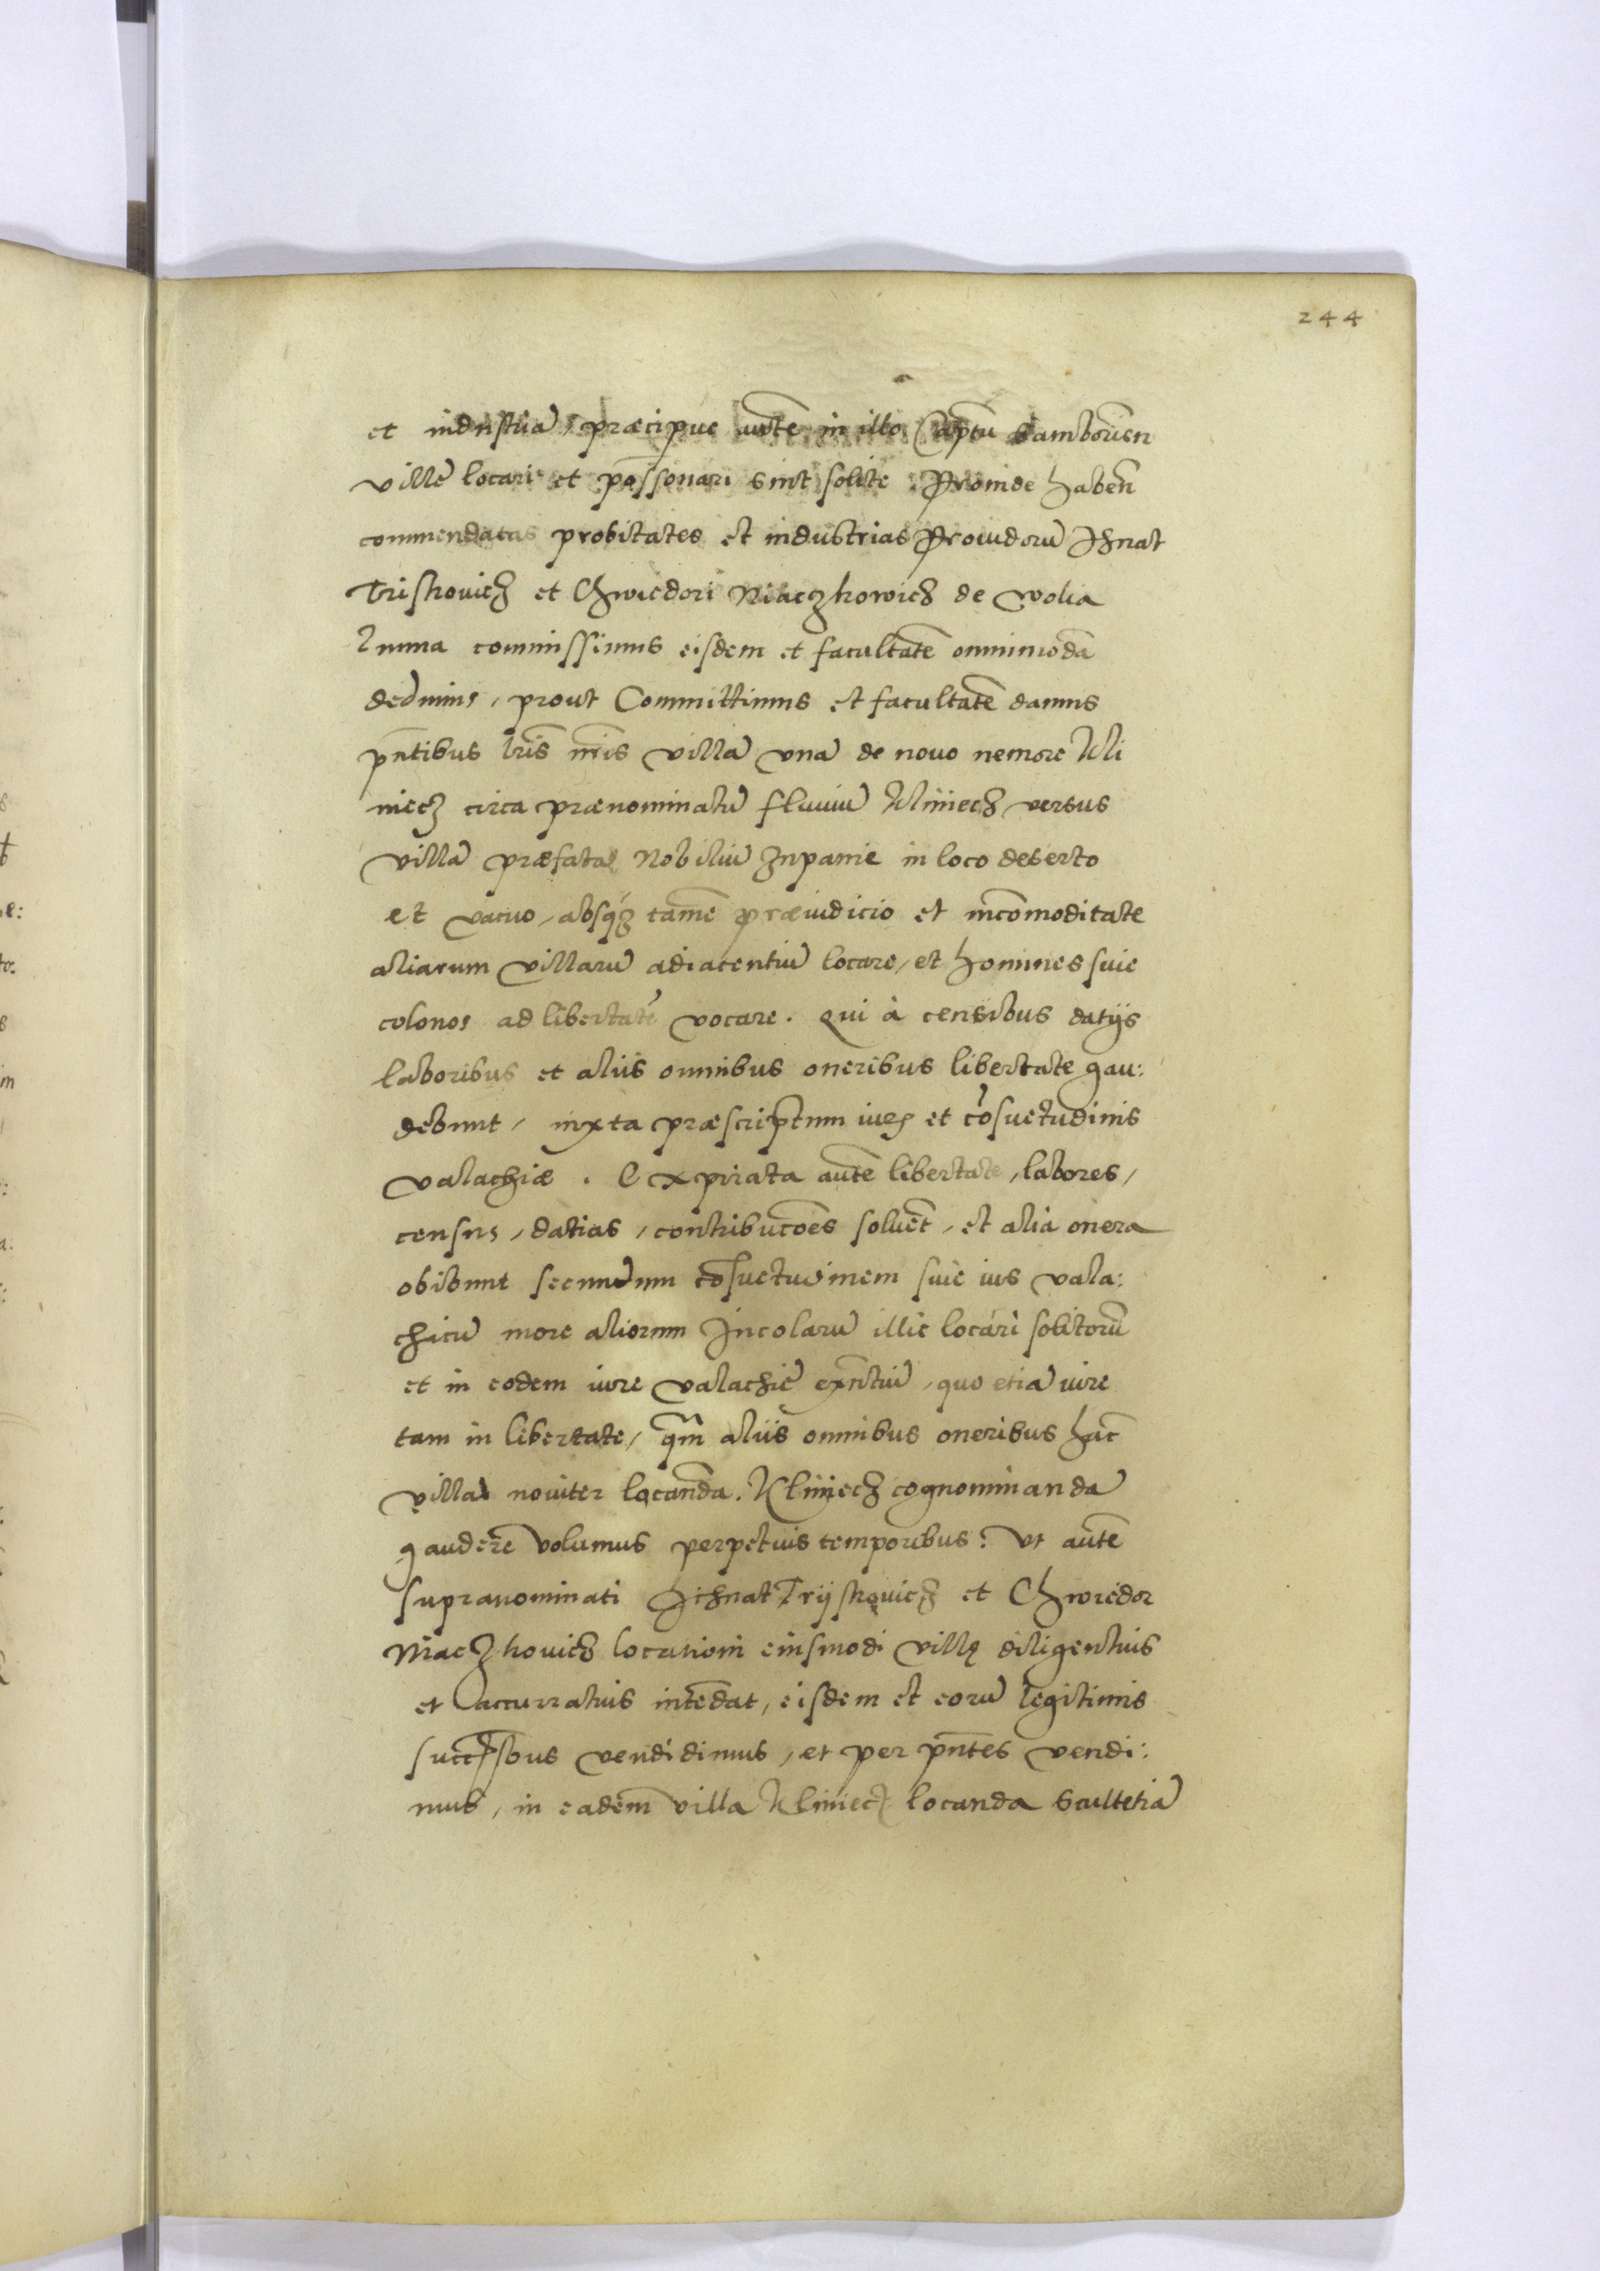 244
et industriã, præcipue autẽ in illo Captũ Samborien̄
ville locari et possonari sint solite. Proinde haben̄
commendatas probitates et industrias Prouidorũ Ihnat
Triskouicz et Chwiedori Niaczkowicz de Wolia
commissimus eisdem et facultatẽ omnimodã
dedimus, prout Committimus et facultatẽ damus
pn̄tibus lr̄is nr̄is villã vnã de nouo nemore Kli
niecz circa prænominatũ fluuiũ Kliniecz, versus
villã præfatã Nobiliũ Inpanie in loco deserto
et vacuo, absq₃ tamẽ præiudicio et incõmoditate
aliarum villarũ adiacentiũ locare, et homines siue
colonos ad libertatẽ vocare. Qui à censibus datijs
laboribus et aliis omnibus oneribus libertate gau:
debunt, iuxta præscriptum iuris et cõsuetudinis
valachiæ. Expirata autẽ libertate, labores,
census, datias, contribucões soluẽt, et alia onera
obibunt secundum cõsuetudinem siue ius vala:
chicũ more aliorum Incolarũ illic locari solitorũ
et in eodem iure valachie exn̄tiũ, quo etiã iure
tam in libertate, qm̄ aliis omnibus oneribus hãc
villã nouiter locandã. Kliniecz cognominandã
gaudere volumus perpetuis temporibus: Vt autẽ
supranominati Ihnat Trijskouicz et Chwiedor
Niaczkouicz locationi eiusmodi villę diligentius
et accurratius intẽdat, eisdem et eorũ legitimis
succ̄sõus vendidimus, et per pn̄tes vendi:
mus, in eadem villa Kliniecz locanda Scultetiã